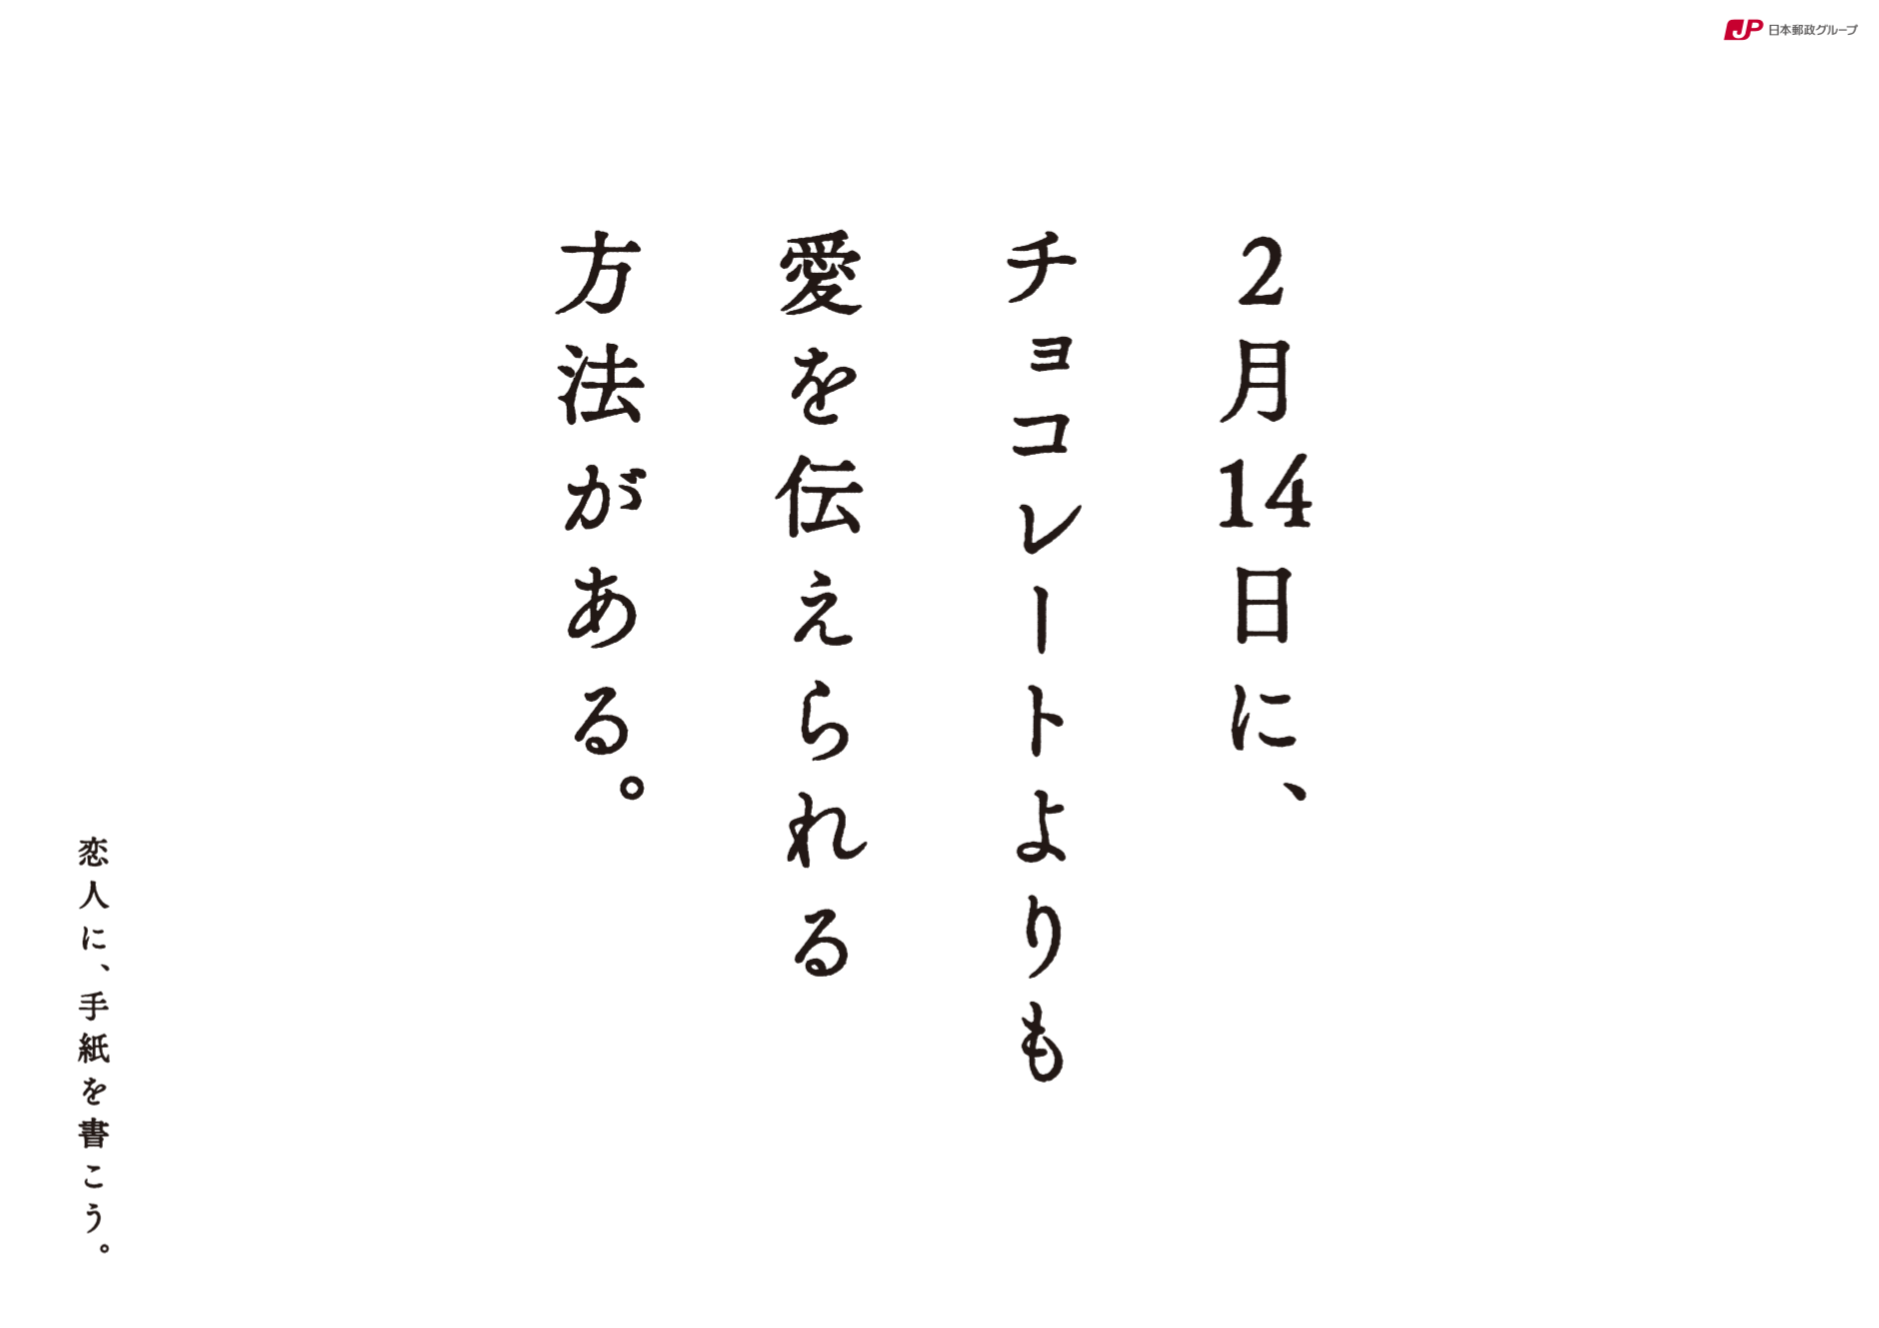 JP 日本郵政グループ
2月14日に、
チョコレートよりも
愛を伝えられる
方法がある。
恋人に、手紙を書こう。